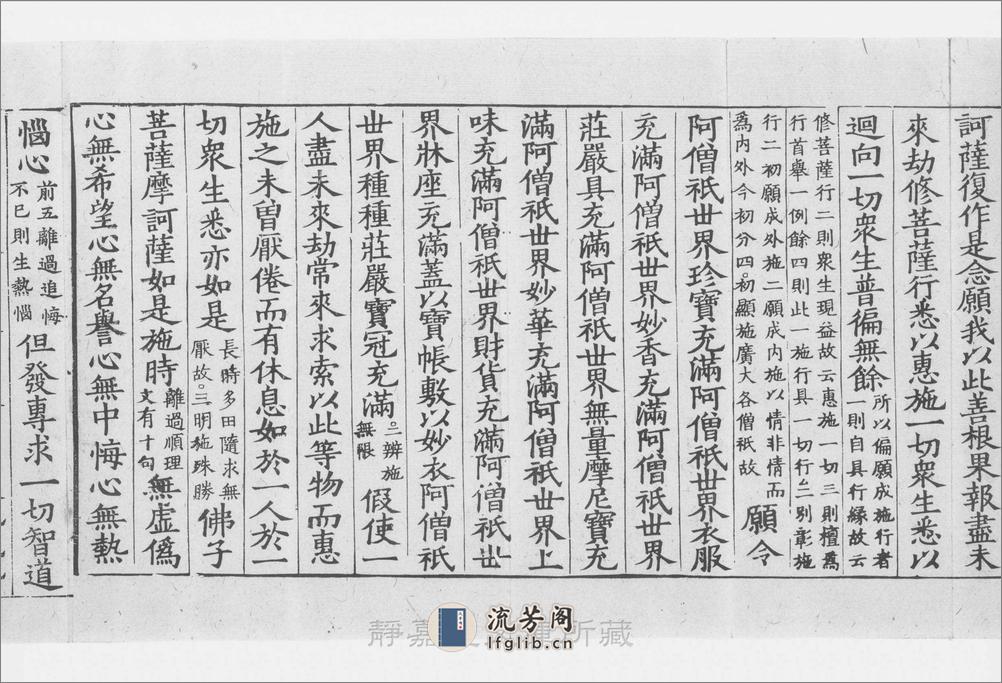 訶薩復作是念願我以此善根果報盡未
來劫修菩薩行悉以惠施一切衆生悉以
迴向一切衆生普徧無餘所以偏願成施行者
一則自具行緣故云
修菩薩行二則衆生現益故云惠施一切三則檀爲
行首舉一例餘四則此一施行具一切行△二别彰施
行二初願成外施二願成内施以情非情而
爲内外今初分四○初顯施廣大各僧祇故願令
阿僧祇世界珍寶充滿阿僧祇世界衣服
充滿阿僧祇世界妙香充滿阿僧祇世界
莊嚴具充滿阿僧祇世界無量摩尼寶充
滿阿僧祇世界妙華充滿阿僧祇世界上
味充滿阿僧祇世界財貨充滿阿僧祇世
界牀座充滿蓋以寶帳敷以妙衣阿僧祇
世界種種莊嚴寶冠充滿○二辨施
無限假使一
人盡未來劫常來求索以此等物而惠
施之未曾厭倦而有休息如於一人於一
切衆生悉亦如是長時多田隨求無
厭故○三明施殊勝佛子
菩薩摩訶薩如是施時離過順理
文有十句無虛僞
心無希望心無名譽心無中悔心無熱
惱心前五離過追悔
不已則生熱惱但發專求一切智道
靜嘉堂文庫所藏
流芳阁
lfglib.cn